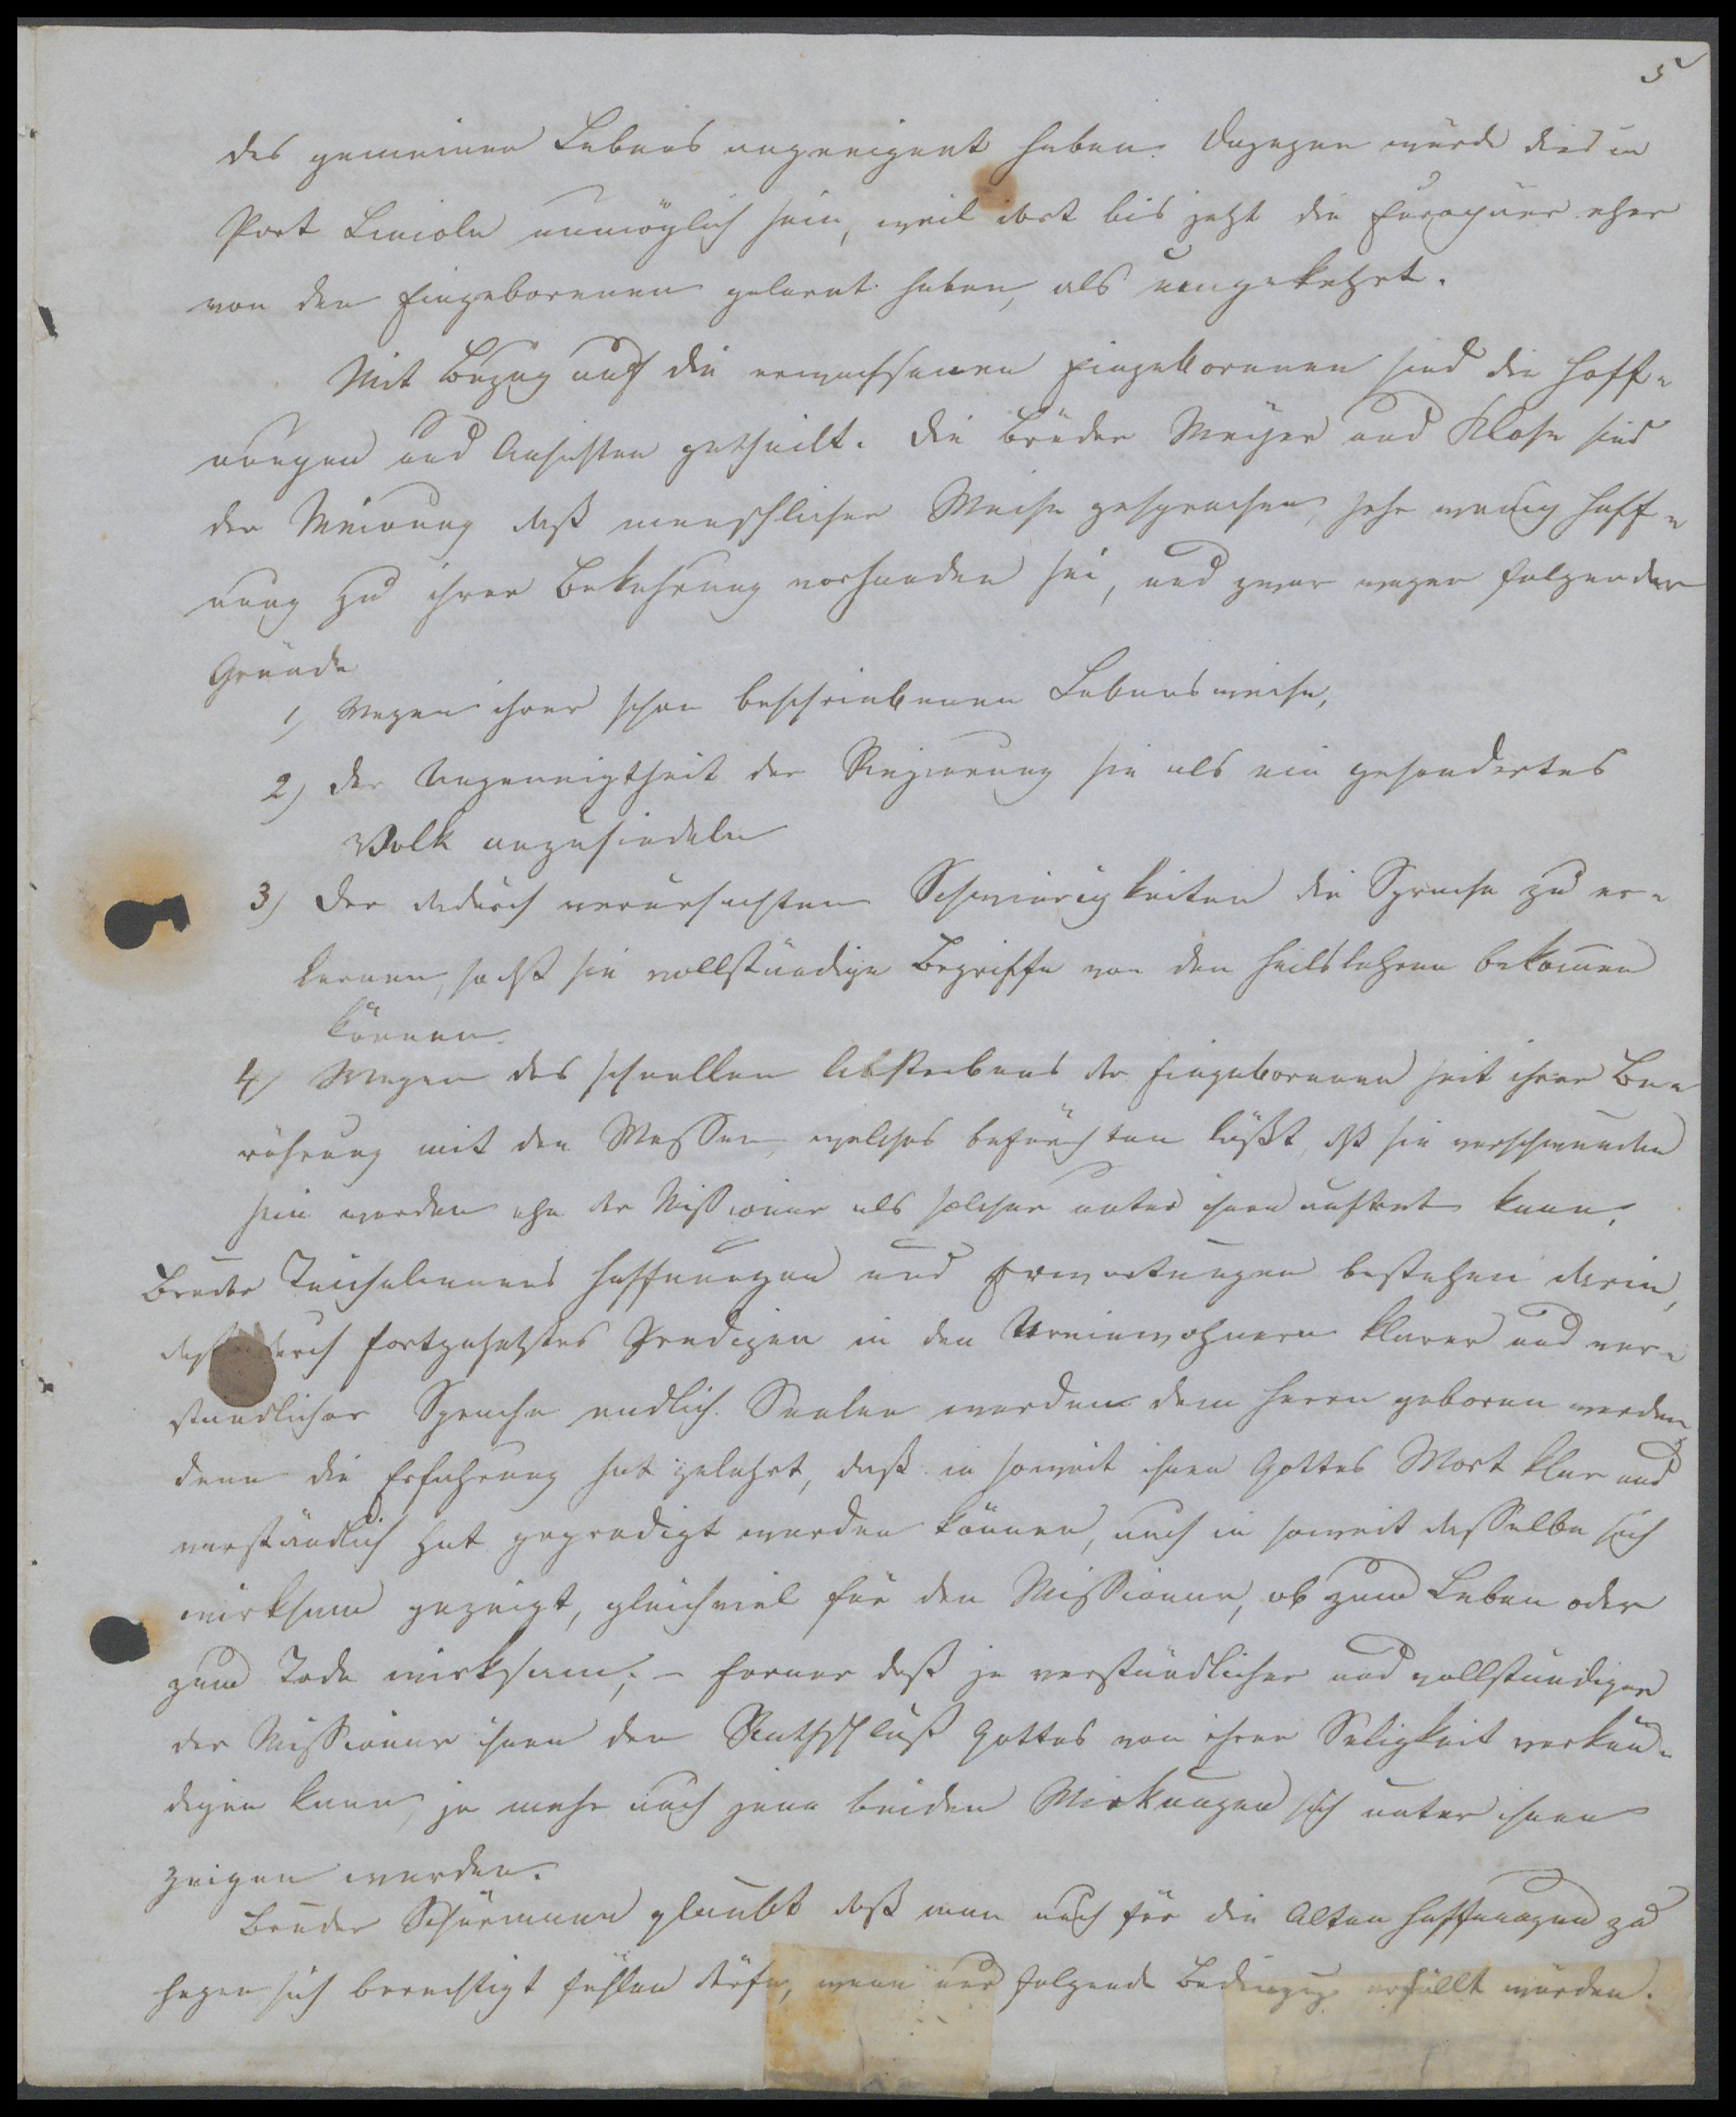 5
des gemeinen Lebens angeeignet haben. Dagegen würde dies in
Port Lincoln unmöglich sein, weil dort bis jetzt die Europäer eher
von den Eingeborenen gelernt haben, als umgekehrt.
Mit Bezug auf die erwachsenen Eingeborenen sind die Hoff-
nungen und Ansichten getheilt. Die Brüder Meyer und Klose sind
der Meinung daß menschlicher Weise gesprochen, sehr wenig Hoff-
nung zu ihrer Bekehrung vorhanden sei, und zwar wegen folgender
Gründe
1) Wegen ihrer schon beschriebenen Lebensweise,
2) der Ungeneigtheit der Regierung sie als ein gesondertes
Volk anzusiedeln
3) der dadurch verursachten Schwierigkeiten die Sprache zu er-
lernen, so daß sie vollständige Begriffe von den Heilslehren bekommen
können.
4) Wegen des schnellen Absterbens der Eingeborenen seit ihrer Be-
rührung mit den Weißen, welches befürchten läßt, daß sie verschwunden
sein werden ehe der Missionar als solcher unter ihnen auftret kann.
Bruder Teichelmanns Hoffnungen und Erwartungen bestehen darin,
daß durch fortgesetztes Predigen in den Ureinwohnern klarer und ver-
ständlicher Sprache endlich Seelen werden dem Herrn geboren werden,
denn die Erfahrung hat gelehrt, daß in soweit ihnen Gottes Wort klar und
verständlich hat gepredigt werden können, auch in soweit dasselbe sich
wirksam gezeigt, gleichviel für den Missionar, ob zum Leben oder
zum Tode wirksam; – ferner daß je verständlicher und vollständiger
der Missionar ihnen den Rathschluß Gottes von ihrer Seligkeit verkün-
digen kann, je mehr auch jene beiden Wirkungen sich unter ihnen
zeigen werden.
Bruder Schürmann glaubt daß man auch für die Alten Hoffnungen zu
hegen sich berechtigt fühlen dürfe, wenn nur folgende Bedingung erfüllt würden.